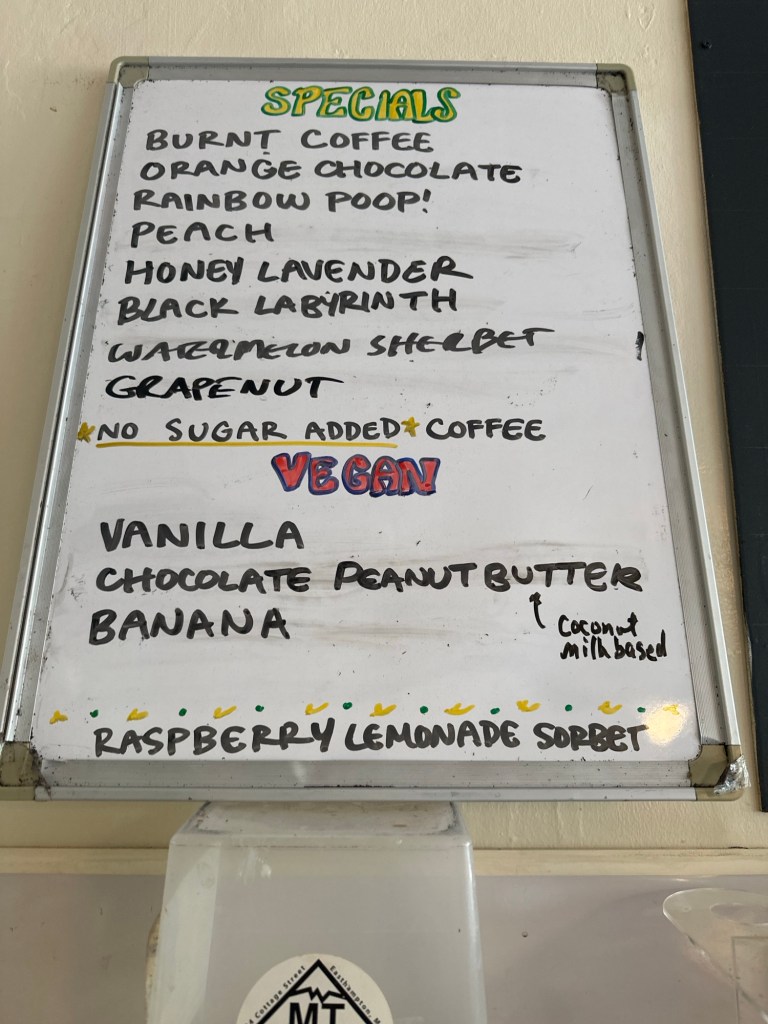 SPECIALS
BURNT COFFEE
ORANGE CHOCOLATE
RAINBOW POOP!
PEACH
HONEY LAVENDER
BLACK LABYRINTH
WATERMELON SHERBET
GRAPENUT
*NO SUGAR ADDED* COFFEE
VEGAN
VANILLA
CHOCOLATE PEANUT BUTTER
BANANA
Coconut
milk based
RASPBERRY LEMONADE SORBET
Cottage Street Easthampton,
MT